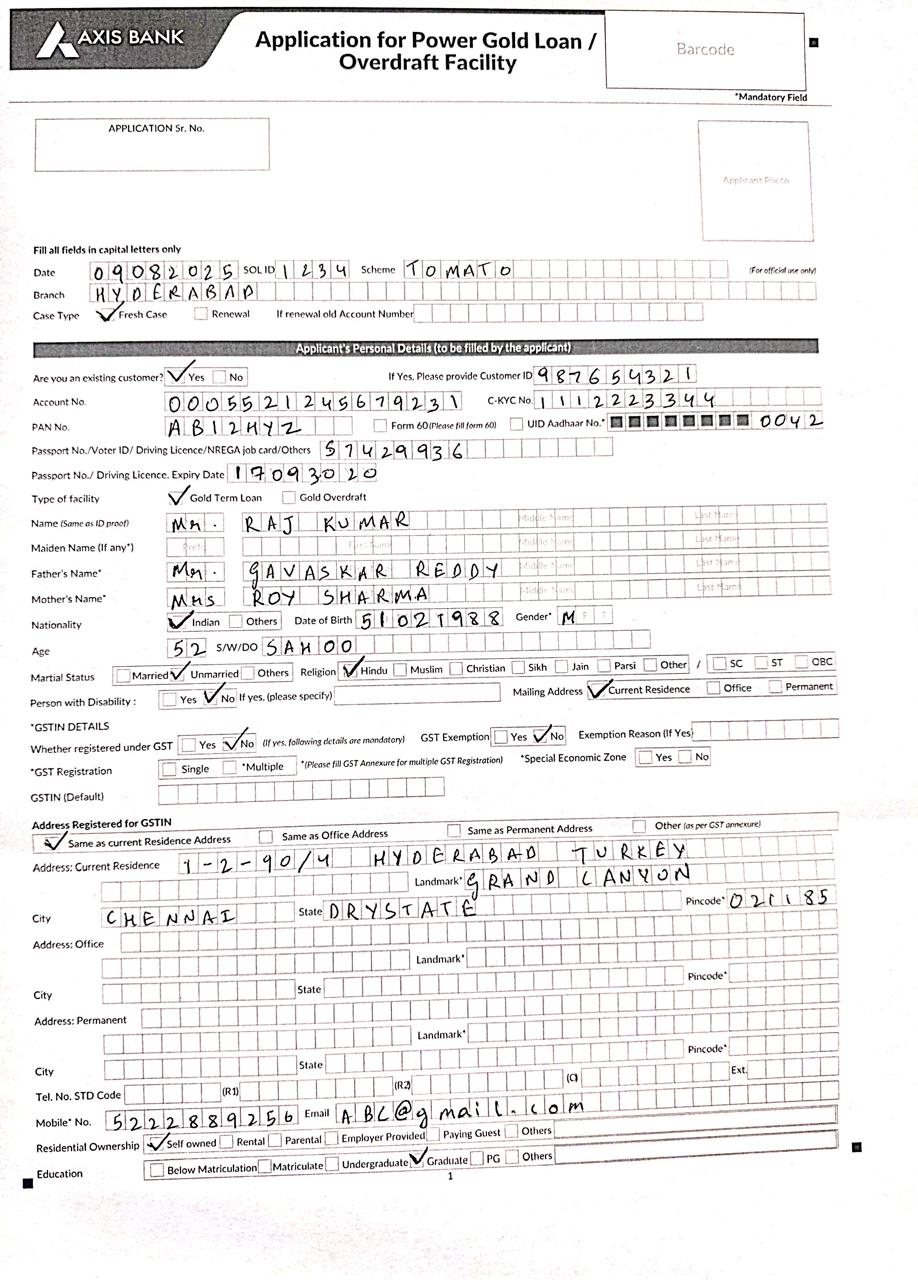 AXIS BANK
Application for Power Gold Loan /
Overdraft Facility
Barcode
*Mandatory Field
APPLICATION Sr. No.
Applicant Photo
Fill all fields in capital letters only
Date 09082025 SOL ID 1234 Scheme TOMATO (For official use only)
Branch HYDERABAD
Case Type Fresh Case Renewal If renewal old Account Number
Applicant's Personal Details (to be filled by the applicant)
Are you an existing customer? Yes No If Yes, Please provide Customer ID 987654321
Account No. 0005521245679231 C-KYC No. 1112223344
PAN No. AB12HYZ Form 60 (Please fill form 60) UID Aadhaar No.* 0042
Passport No./Voter ID/ Driving Licence/NREGA job card/Others 57429936
Passport No./ Driving Licence. Expiry Date 17093020
Type of facility Gold Term Loan Gold Overdraft
Name (Same as ID proof) Mr. RAJ KUMAR Middle Name Last Name
Maiden Name (If any*) Prefix First Name Middle Name Last Name
Father's Name* Mr. GAVASKAR REDDY Middle Name Last Name
Mother's Name* MRS ROY SHARMA Middle Name Last Name
Nationality Indian Others Date of Birth 51021988 Gender* M F T
Age 52 S/W/DO SAHOO
Martial Status Married Unmarried Others Religion Hindu Muslim Christian Sikh Jain Parsi Other / SC ST OBC
Person with Disability : Yes No If yes, (please specify) Mailing Address Current Residence Office Permanent
*GSTIN DETAILS
Whether registered under GST Yes No (If yes, following details are mandatory) GST Exemption Yes No Exemption Reason (If Yes)
*GST Registration Single *Multiple *(Please fill GST Annexure for multiple GST Registration) *Special Economic Zone Yes No
GSTIN (Default)
Address Registered for GSTIN
Same as current Residence Address Same as Office Address Same as Permanent Address Other (as per GST annexure)
Address: Current Residence 1-2-90/4 HYDERABAD TURKEY
Landmark* GRAND CANYON
City CHENNAI State DRYSTATE Pincode* 021185
Address: Office
Landmark*
City State Pincode*
Address: Permanent
Landmark*
City State Pincode*
Tel. No. STD Code (R1) (R2) (O) Ext.
Mobile* No. 5222889256 Email ABC@gmail.com
Residential Ownership Self owned Rental Parental Employer Provided Paying Guest Others
Education Below Matriculation Matriculate Undergraduate Graduate PG Others
1